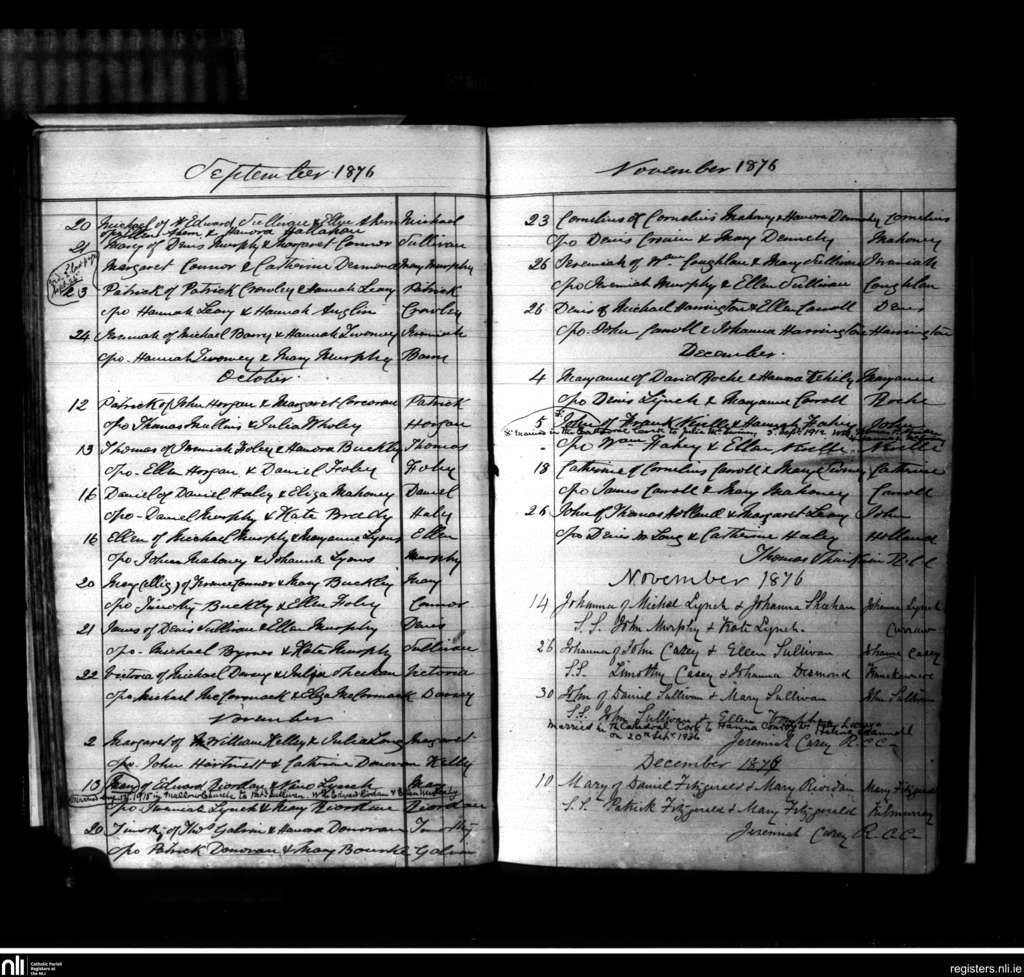 September 1876
20 Michael of Edward Sullivan & Ellen Ahern Michael
spo Ellen Ahern & Hanora Hallahan
21 Mary of Denis Murphy & Margaret Connor Sullivan
Margaret Connor & Catherine Desmond Mary Murphy
23 Patrick of Patrick Crowley & Hannah Leary Patrick
spo Hannah Leary & Hannah Anglin Crowley
24 Jeremiah of Michael Barry & Hannah Twomey Jeremiah
spo. Hannah Twomey & Mary Murphy Barry
October.
12 Patrick of John Horgan & Margaret Corcoran Patrick
spo Thomas Mullins & Julia Wholey Horgan
13 Thomas of Jeremiah Foley & Hanora Buckley Thomas
spo. Ellen Horgan & Daniel Foley Foley
16 Daniel of Daniel Haly & Eliza Mahoney Daniel
spo- Daniel Murphy & Kate Brady Haly
16 Ellen of Michael Murphy & Maryanne Lyons Ellen
spo Johanna Mahoney & Johannah Lyons Murphy
20 Mary (Eliz) of Connor & Mary Buckley Mary
spo Timothy Buckley & Ellen Foley Connor
21 James of Denis Sullivan & Ellen Murphy Denis
spo- Michael Byrnes & Kate Murphy Sullivan
22 Victoria of Michael Darcy & Julia Sheehan Victoria
spo Michael McCormack & Eliza McCormack Darcy
November
2 Margaret of William Kelley & Julia Long Margaret
spo. John Hartnett & Catherine Donovan Kelly
13 Mary of Edward Riordan & Lynch Mary
Married 1915 in Mallow Church to Sullivan
spo. Jeremiah Lynch & Mary Riordan Riordan
20 Timothy of Thos Galvin & Hanora Donovan Timothy
spo Patrick Donovan & Mary Bourke Galvin
November 1876
23 Cornelius of Cornelius Mahony & Hanora Dennehy Cornelius
spo Denis Cronin & Mary Dennehy Mahoney
26 Jeremiah of Wm Coughlan & Mary Sullivan Jeremiah
spo Jeremiah Murphy & Ellen Sullivan Coughlan
26 Denis of Michael Harrington & Ellen Carroll Denis
spo. John Carroll & Johanna Harrington Harrington
December.
4 Maryanne of David Roche & Hanna Kehily Maryanne
spo Denis Lynch & Maryanne Carroll Roche
5 John of Frank & Hannah Fahey John
Married in the Cathedral Cork to Julia 3 Sept 1912
spo Wm Fahey & Ellen
18 Catherine of Cornelius Carroll & Mary Catherine
spo James Carroll & Mary Mahoney Carroll
26 John of Thomas Holland & Margaret Leary John
spo Denis Long & Catherine Haley Holland
Thomas R.C.C
November 1876
14 Johanna of Michal Lynch & Johanna Sheehan Johanna Lynch
S.S. John Murphy & Kate Lynch. Curraw
26 Johanna of John Casey & Ellen Sullivan Johanna Casey
S.S. Timothy Casey & Johanna Desmond
30 John of Daniel Sullivan & Mary Sullivan John Sullivan
S.S. John Sullivan & Ellen
Married in the Cathedral Cork to Hanna
on 20th Sept. 1936
Jeremiah Carey R.C.C-
December 1876
10 Mary of Daniel Fitzgerald & Mary Riordan Mary Fitzgerald
S.S. Patrick Fitzgerald & Mary Fitzgerald Kilmurray
Jeremiah Carey R.C.C-
nli
Catholic Parish
Registers at
the NLI
registers.nli.ie